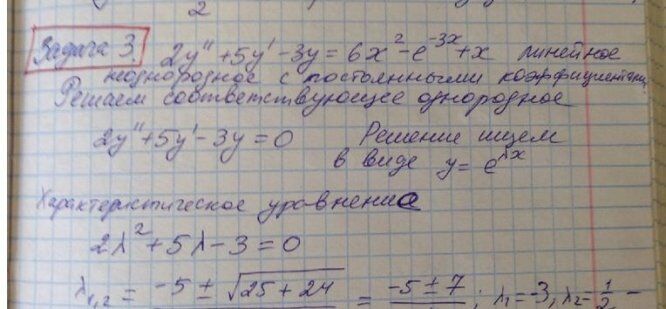 2
Задача 3. 2y'' + 5y' - 3y = 6x² - e^{-3x} + x линейное
неоднородное с постоянными коэффициентами
Решаем соответствующее однородное
2y'' + 5y' - 3y = 0 Решение ищем
в виде y = e^{λx}
Характеристическое уравнение
2λ² + 5λ - 3 = 0
λ₁,₂ = -5 ± √25 + 24 = -5 ± 7 ; λ₁ = -3, λ₂ = 1/2 -